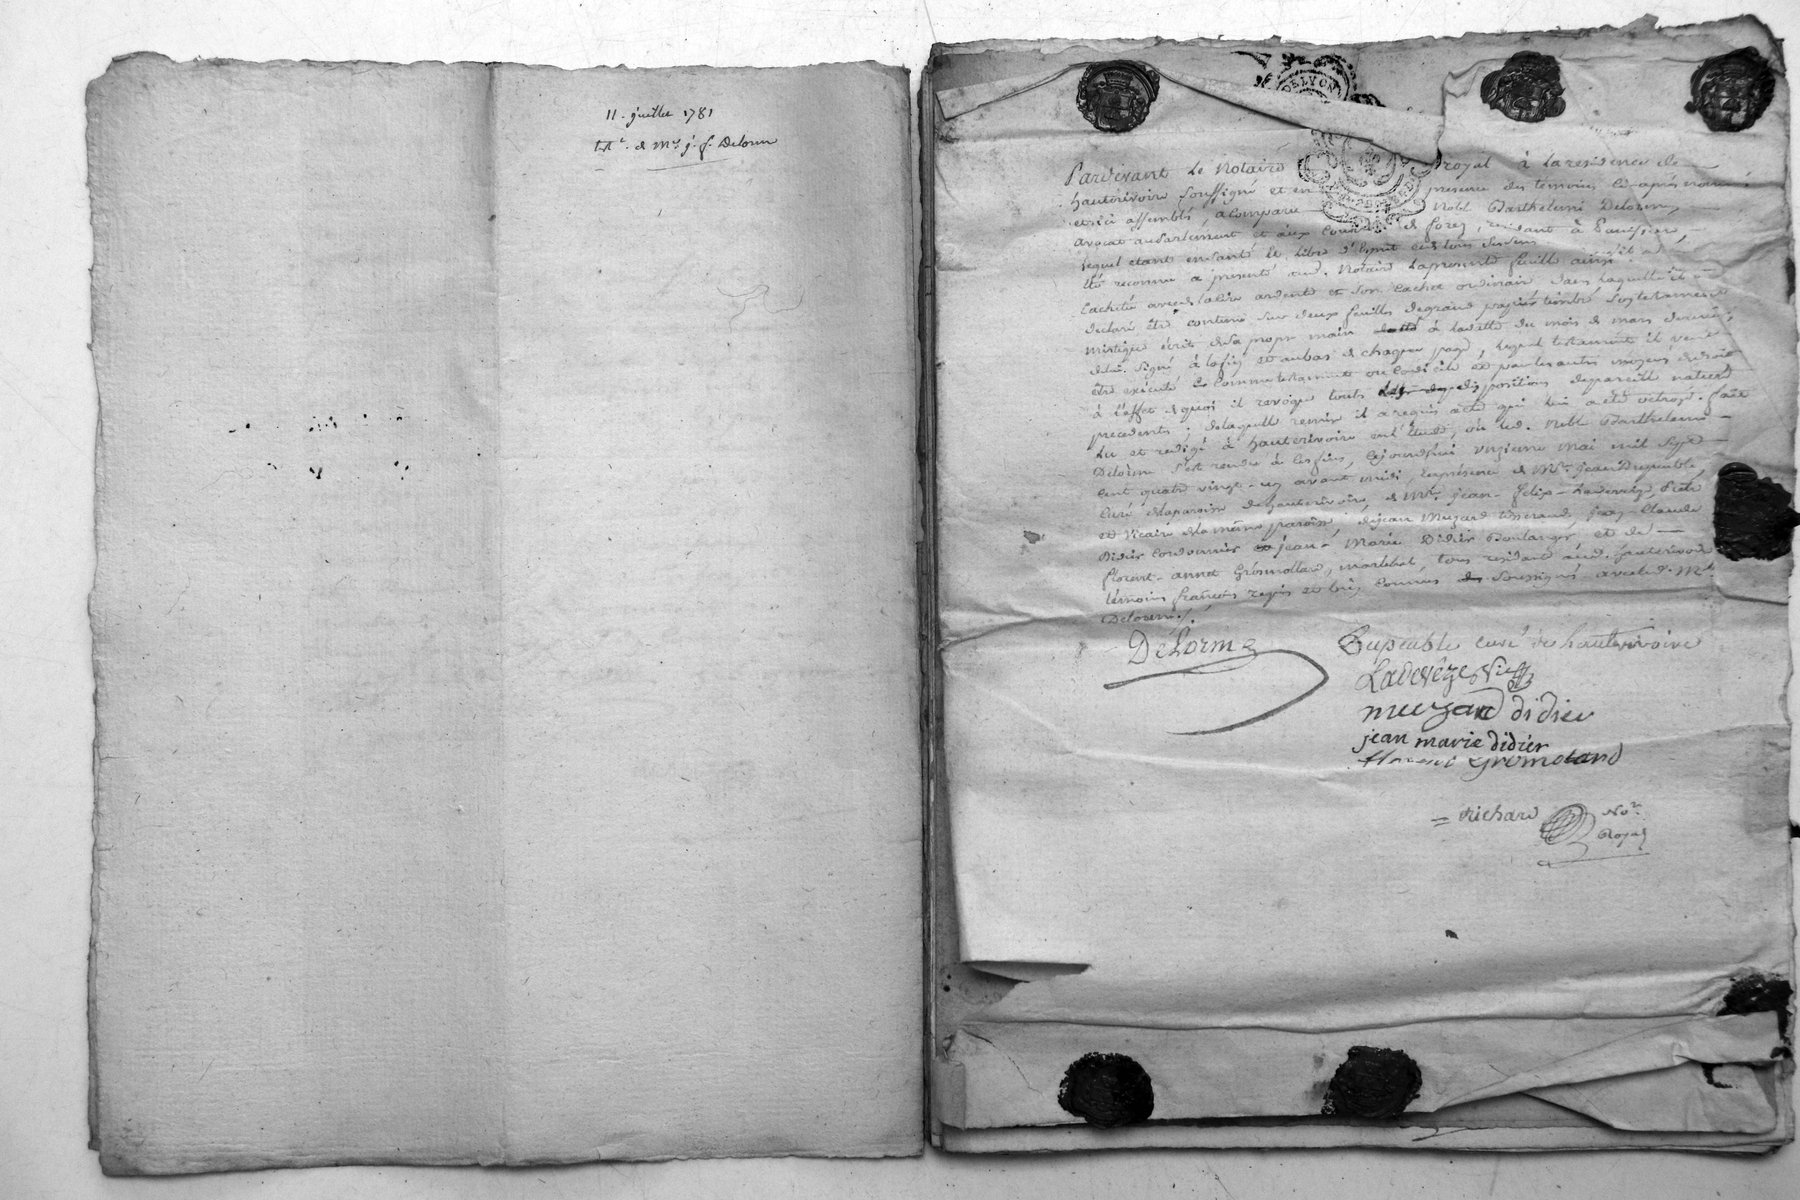 11. juillet 1781
testt. de Mre. j. f. Delorme
DELYON
Pardevant Le Notaire royal à la residence de
hauterivoire soussigné et en presence des témoins cy-après nommés
et ici assemblés, a comparu Noble Barthelemi Delorme,
avocat au parlement et aux cours de forez, residant à
lequel etant en santé et libre d'esprit
été reconnu a presenté aud. Notaire la presente feuille ainsi
cachetée avec de la cire ardente et son cachet ordinaire dans laquelle il a
declaré être contenu sur deux feuilles de grand papier timbré, son testament
mistique écrit de sa propre main à la datte du mois de mars dernier,
signé à la fin et au bas de chaque page, lequel testament il veut
être executé comme testament ou codicile et par les autres moyens de droit
à l'effet de quoi il revoque touts dispositions de pareille nature
precedents; de laquelle remise il a requis acte qui lui a été octroyé. fait
Lu et redigé à hauterivoire en l'étude, où led. Noble Barthelemi
Delorme s'est rendu à ces fins, cejourdhui onzieme mai mil sept
cent quatre vingt-un avant midi, en presence de Mre. jean Dupeuble,
curé de la paroisse de hauterivoire, de Mre. jean-felix Ladeveze, Prêtre
et Vicaire de la même paroisse, de jean Muzard tisserand, jean Claude
Didier cordonnier jean-Marie Didier Boulanger, et de
florent-annet Grosmolard, marechal, tous residant aud. hauterivoire
témoins françois requis et très connus soussignés avec led. Mre.
Delorme.
DeLorme
Dupeuble curé de hauterivoire
Ladevéze Vic
muzard didier
jean marie didier
florent gromolard
= Richard Nore.
Royal